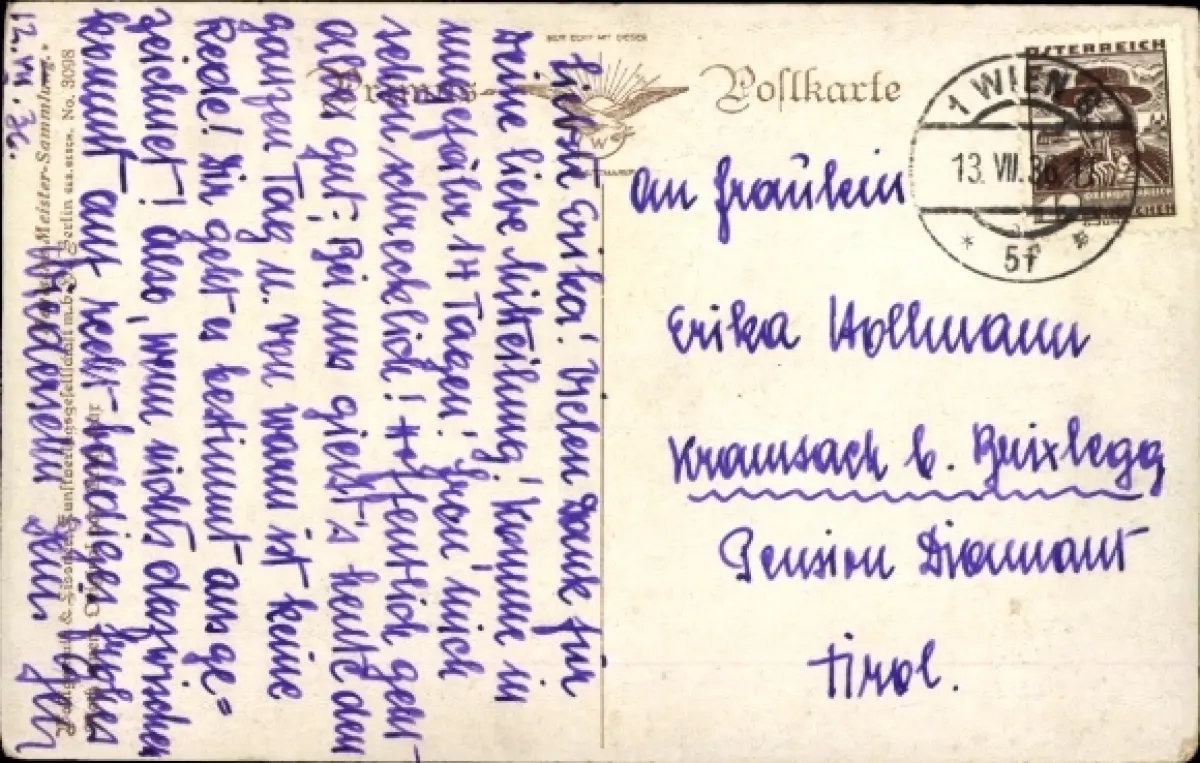 NUR ECHT MIT DIESER
Primus-
Postkarte
W
ÖSTERREICH
1 WIEN
13. VII. 36
5f
An Fräulein
Erika Hollmann
Kramsach b. Brixlegg
Pension Diamant
Tirol.
Liebste Erika! Vielen Dank für
Deine liebe Mitteilung! Komme in
ungefähr 14 Tagen! Freu' mich
schon schrecklich! Hoffentlich geht
alles gut; Bei uns giest's heute den
ganzen Tag u. von warm ist keine
Rede! Dir geht es bestimmt ausge=
zeichnet! Also, wenn nichts dazwischen
kommt auf recht baldiges frohes
Wiedersehn Dein
12. VII. 36.
Meister-Sammlung"
Berlin No. 3098